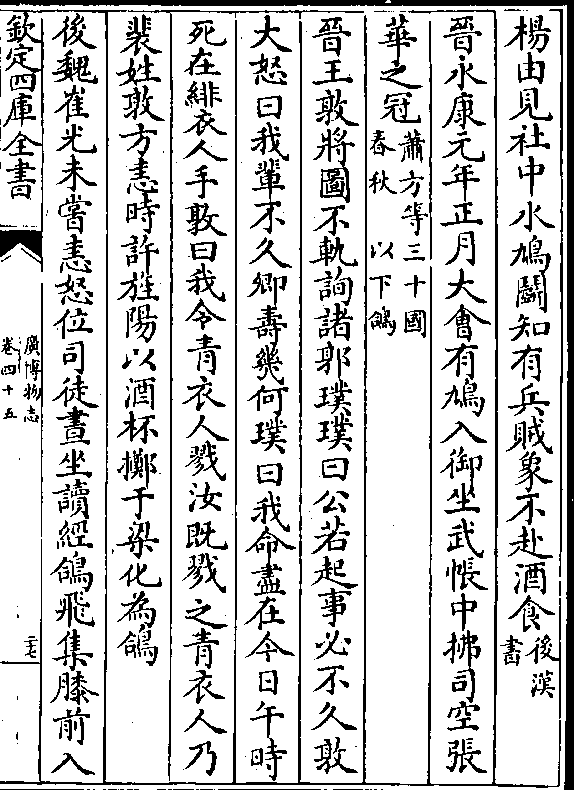 楊由見社中水鳩鬭知有兵賊象不赴酒食後漢書
晉永康元年正月大會有鳩入御坐武帳中拂司空張
華之冠蕭方等三十國春秋 以下鴿
晉王敦將圖不軌詢諸郭璞璞曰公若起事必不久敦
大怒曰我輩不久卿壽幾何璞曰我命盡在今日午時
死在緋衣人手敦曰我令青衣人戮汝既戮之青衣人乃
裴姓敦方恚時許旌陽以酒杯擲于梁化為鴿
後魏崔光未嘗恚怒位司徒晝坐讀經鴿飛集膝前入
欽定四庫全書
廣博物志
卷四十五